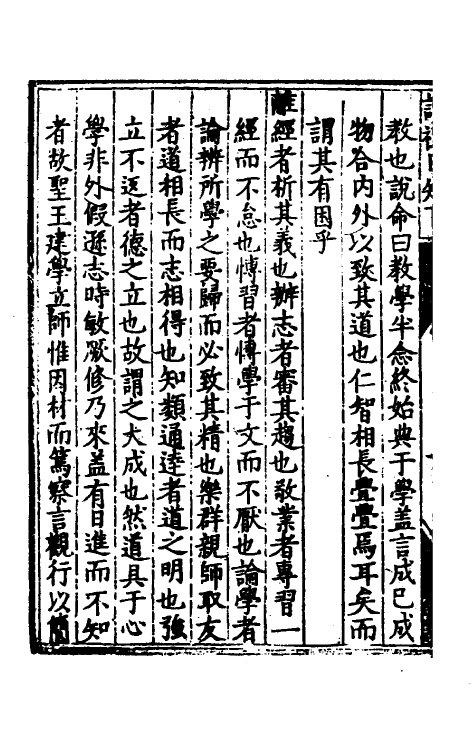 教也說命曰教學半念終始典于學盖言成巳成
物合内外以致其道也仁智相長亹亹焉耳矣而
謂其有困乎
離經者析其義也辦志者審其趨也敬業者專習一
經而不怠也愽習者愽學于文而不厭也論學者
論辨所學之要歸而必致其精也樂群親師取友
者道相長而志相得也知類通逹者道之明也強
立不返者德之立也故謂之大成也然道具于心
學非外假遜志時敏厥修乃來盖有日進而不知
者故聖王建學立師惟因材而篤察言觀行以簡